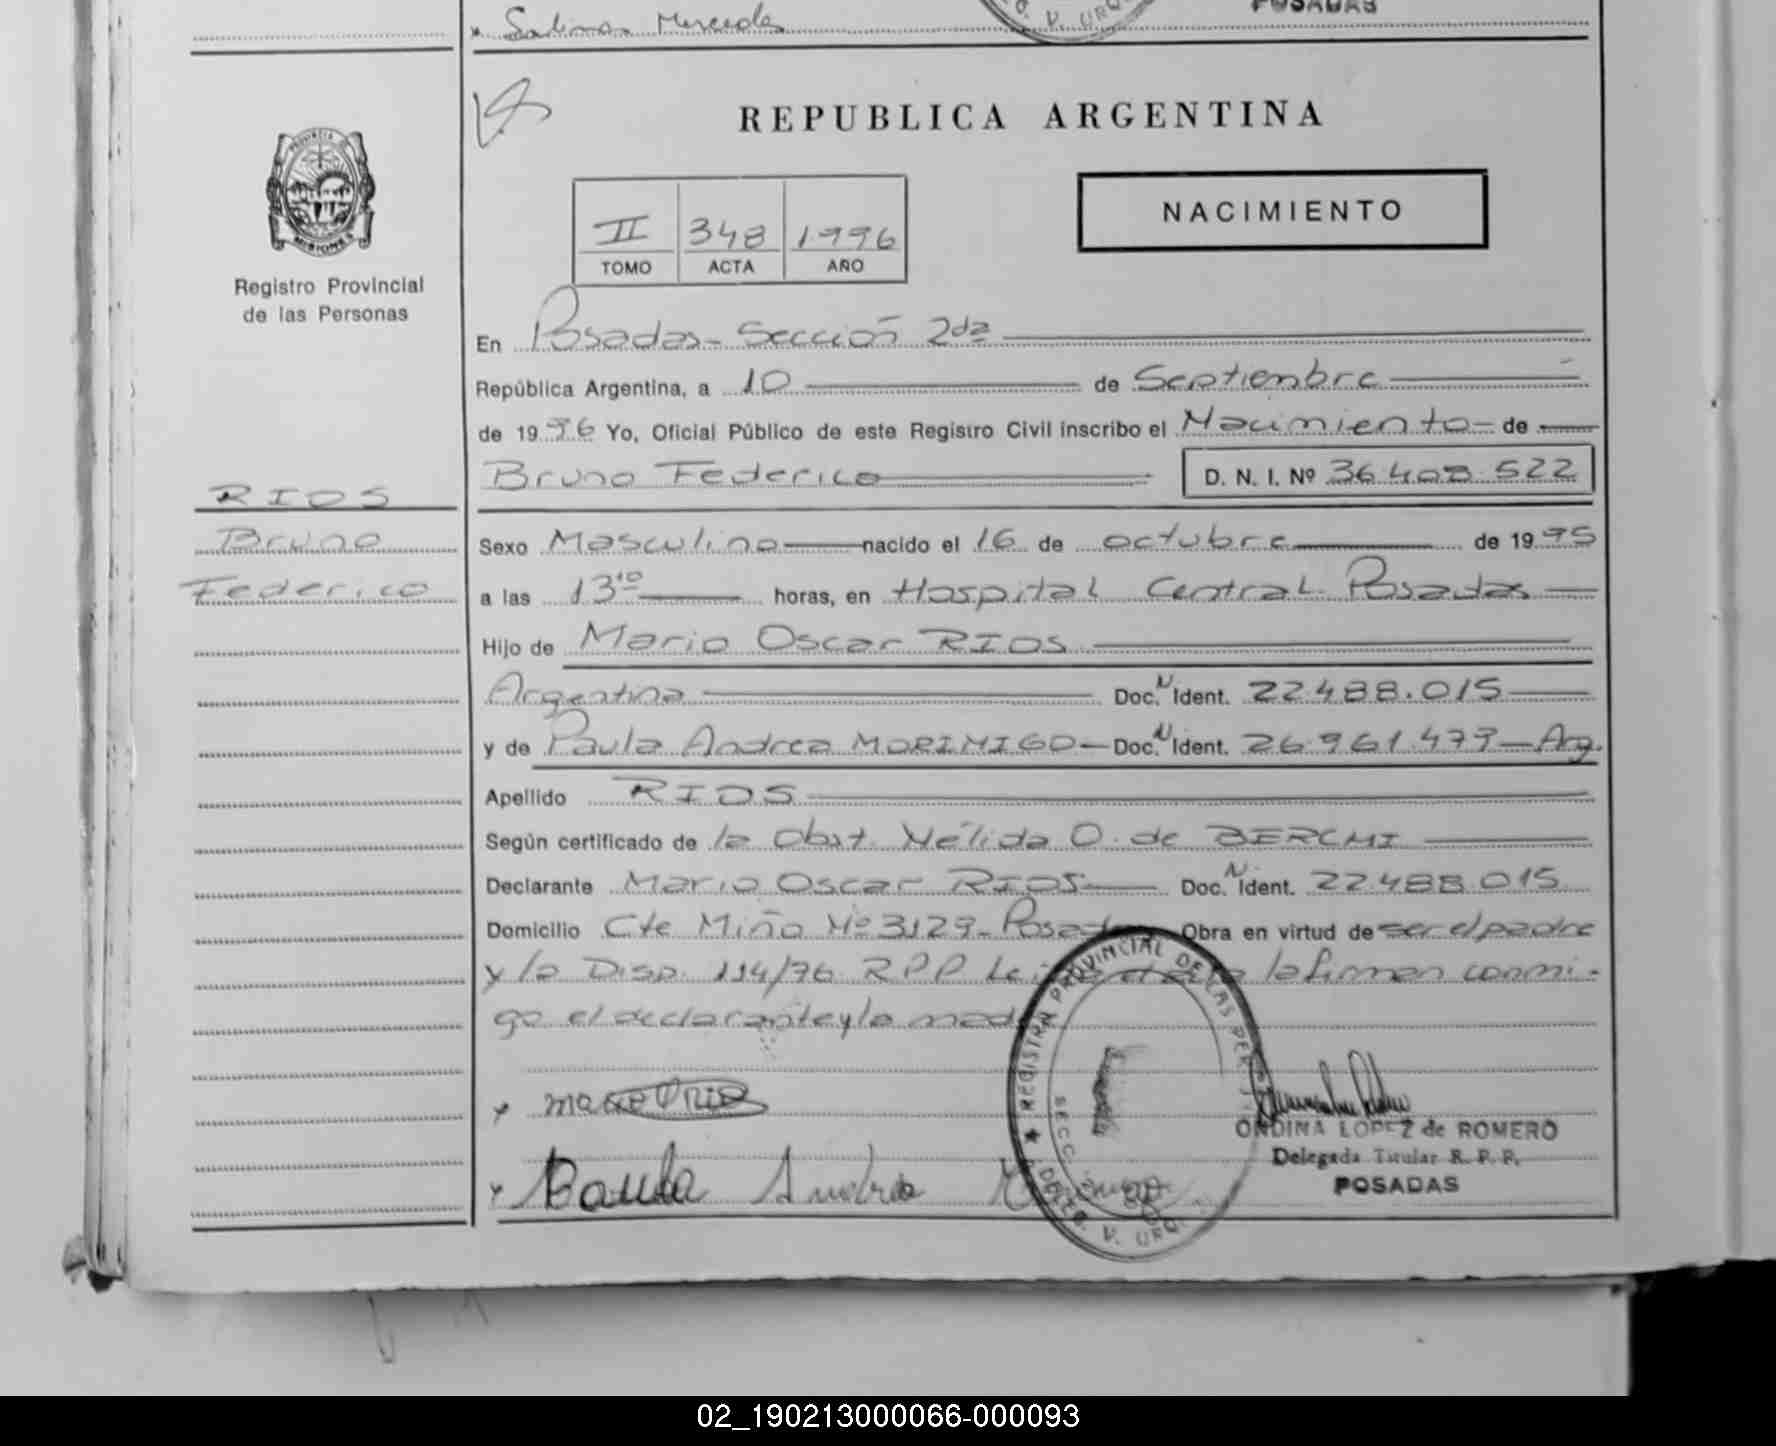 Salinas Mercedes
POSADAS
REPUBLICA ARGENTINA
NACIMIENTO
II 348 1996
TOMO ACTA AÑO
PROVINCIA DE
MISIONES
Registro Provincial
de las Personas
En Posadas - Sección 2da
República Argentina, a 10 de Septiembre
de 1996 Yo, Oficial Público de este Registro Civil inscribo el Nacimiento - de
Bruno Federico D. N. I. Nº 36.408.522
RIOS
Bruno
Federico
Sexo Masculino nacido el 16 de octubre de 1995
a las 13¹⁰ horas, en Hospital Central Posadas
Hijo de Mario Oscar RIOS
Argentina Doc. N Ident. 22.488.015
y de Paula Andrea MORINIGO - Doc. N Ident. 26.961.477 - Arg.
Apellido RIOS
Según certificado de la Obst. Nélida O. de
Declarante Mario Oscar RIOS Doc. N Ident. 22.488.015
Domicilio Cte Miño Nº 3129 - Posadas Obra en virtud de ser el padre
y la Disp. 114/76 R P P la firman conmi-
go el declarante y la madre
Paula Andrea
REGISTRO PROVINCIAL DE LAS PER
SECC.
DELEG. V. URQ
ONDINA LOPEZ de ROMERO
Delegada Titular R. P. P.
POSADAS
02_190213000066-000093